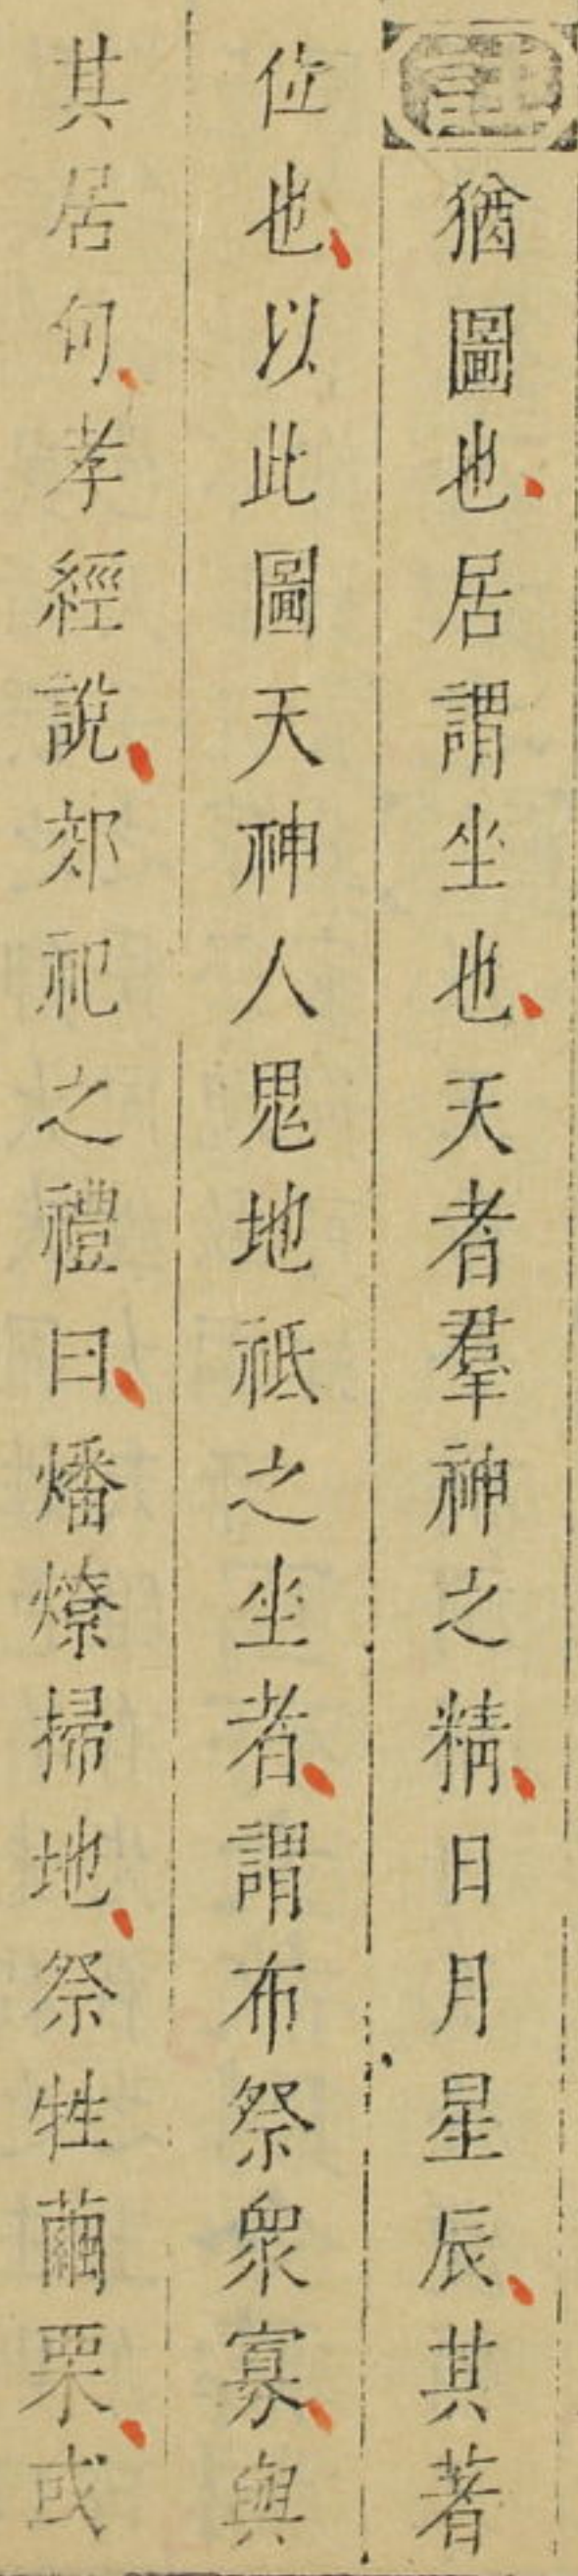 註猶圖也居謂坐也天者羣神之精日月星辰其著
位也以此圖天神人鬼地祇之坐者謂布祭衆寡與
其居句孝經說郊祀之禮曰燔燎掃地祭牲繭栗或